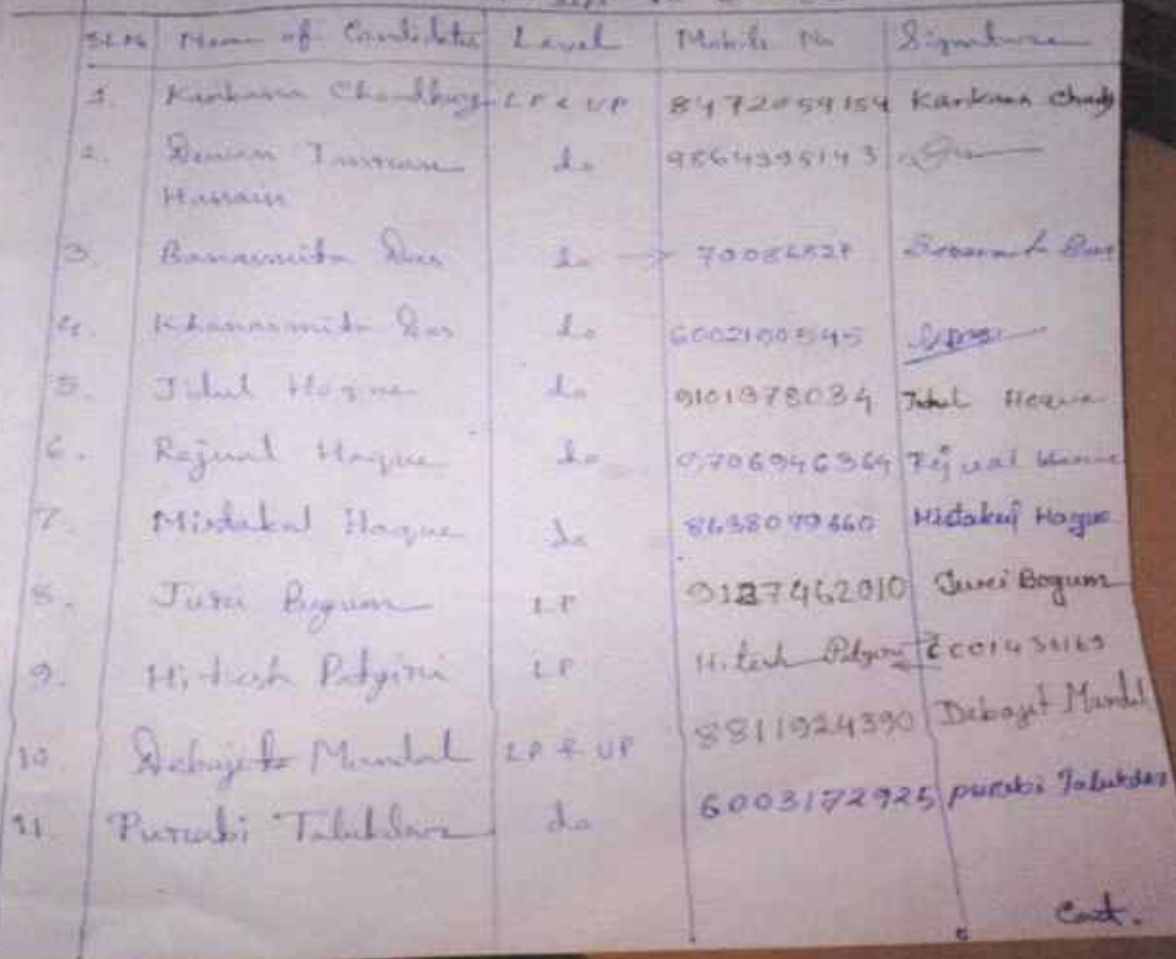 Sl.No Name of Candidates Level Mobile No Signature
1. Kankana Choudhury LP & UP 8472059154 Kankana
2. Dewan Imran do 9864395143
Hassain
3. Banasmita Das do → 70086828 Das
4. Khanasmita Das do 6002100545
5. Jidul Hoque do 9101378034 Jidul Hoque
6. Rejual Haque do 9706946364 Rejual
7. Mistakul Haque do 8638099660 Mistakul Haque
8. Juri Begum LP 9127462010 Juri Begum
9. Hitesh Patgiri LP Hitesh Patgiri
10 Debajit Mandal LP & UP 8811924390 Debajit Mandal
11 Purabi Talukdar do 6003172925 purabi Talukdar
Cont.